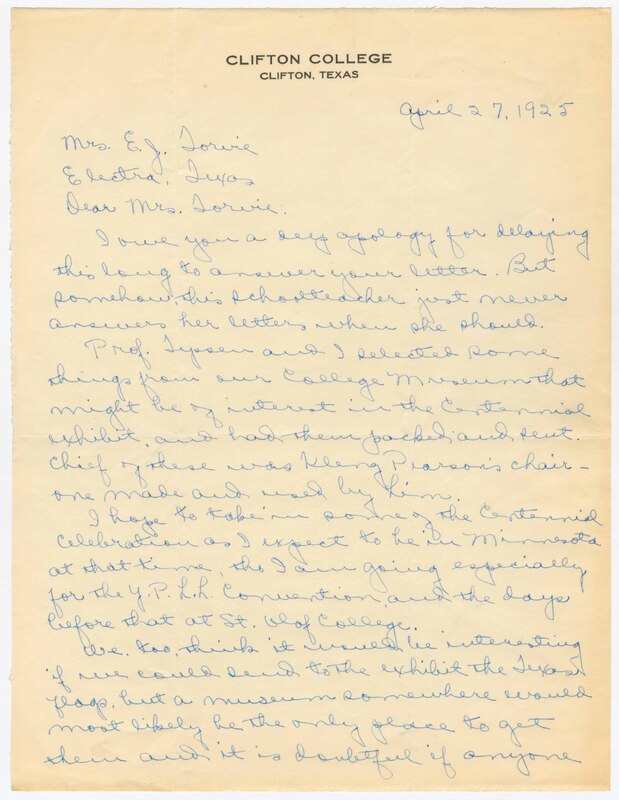 CLIFTON COLLEGE
CLIFTON, TEXAS
April 27, 1925
Mrs. E. J. Torvie
Electra, Texas
Dear Mrs. Torvie:
I owe you a deep apology for delaying
this long to answer your letter. But
somehow, this schoolteacher just never
answers her letters when she should.
Prof. Tyssen and I selected some
things from our College Museum that
might be of interest in the Centennial
exhibit, and had them packed and sent.
Chief of these was Kleng Pearson's chair -
one made and used by him.
I hope to take in some of the Centennial
Celebration as I expect to be in Minnesota
at that time, tho I am going especially
for the Y.P.L.L. Convention, and the days
before that at St. Olaf College.
We, too, think it would be interesting
if we could send to the exhibit the Texas
flags, but a museum somewhere would
most likely be the only place to get
them and it is doubtful if anyone